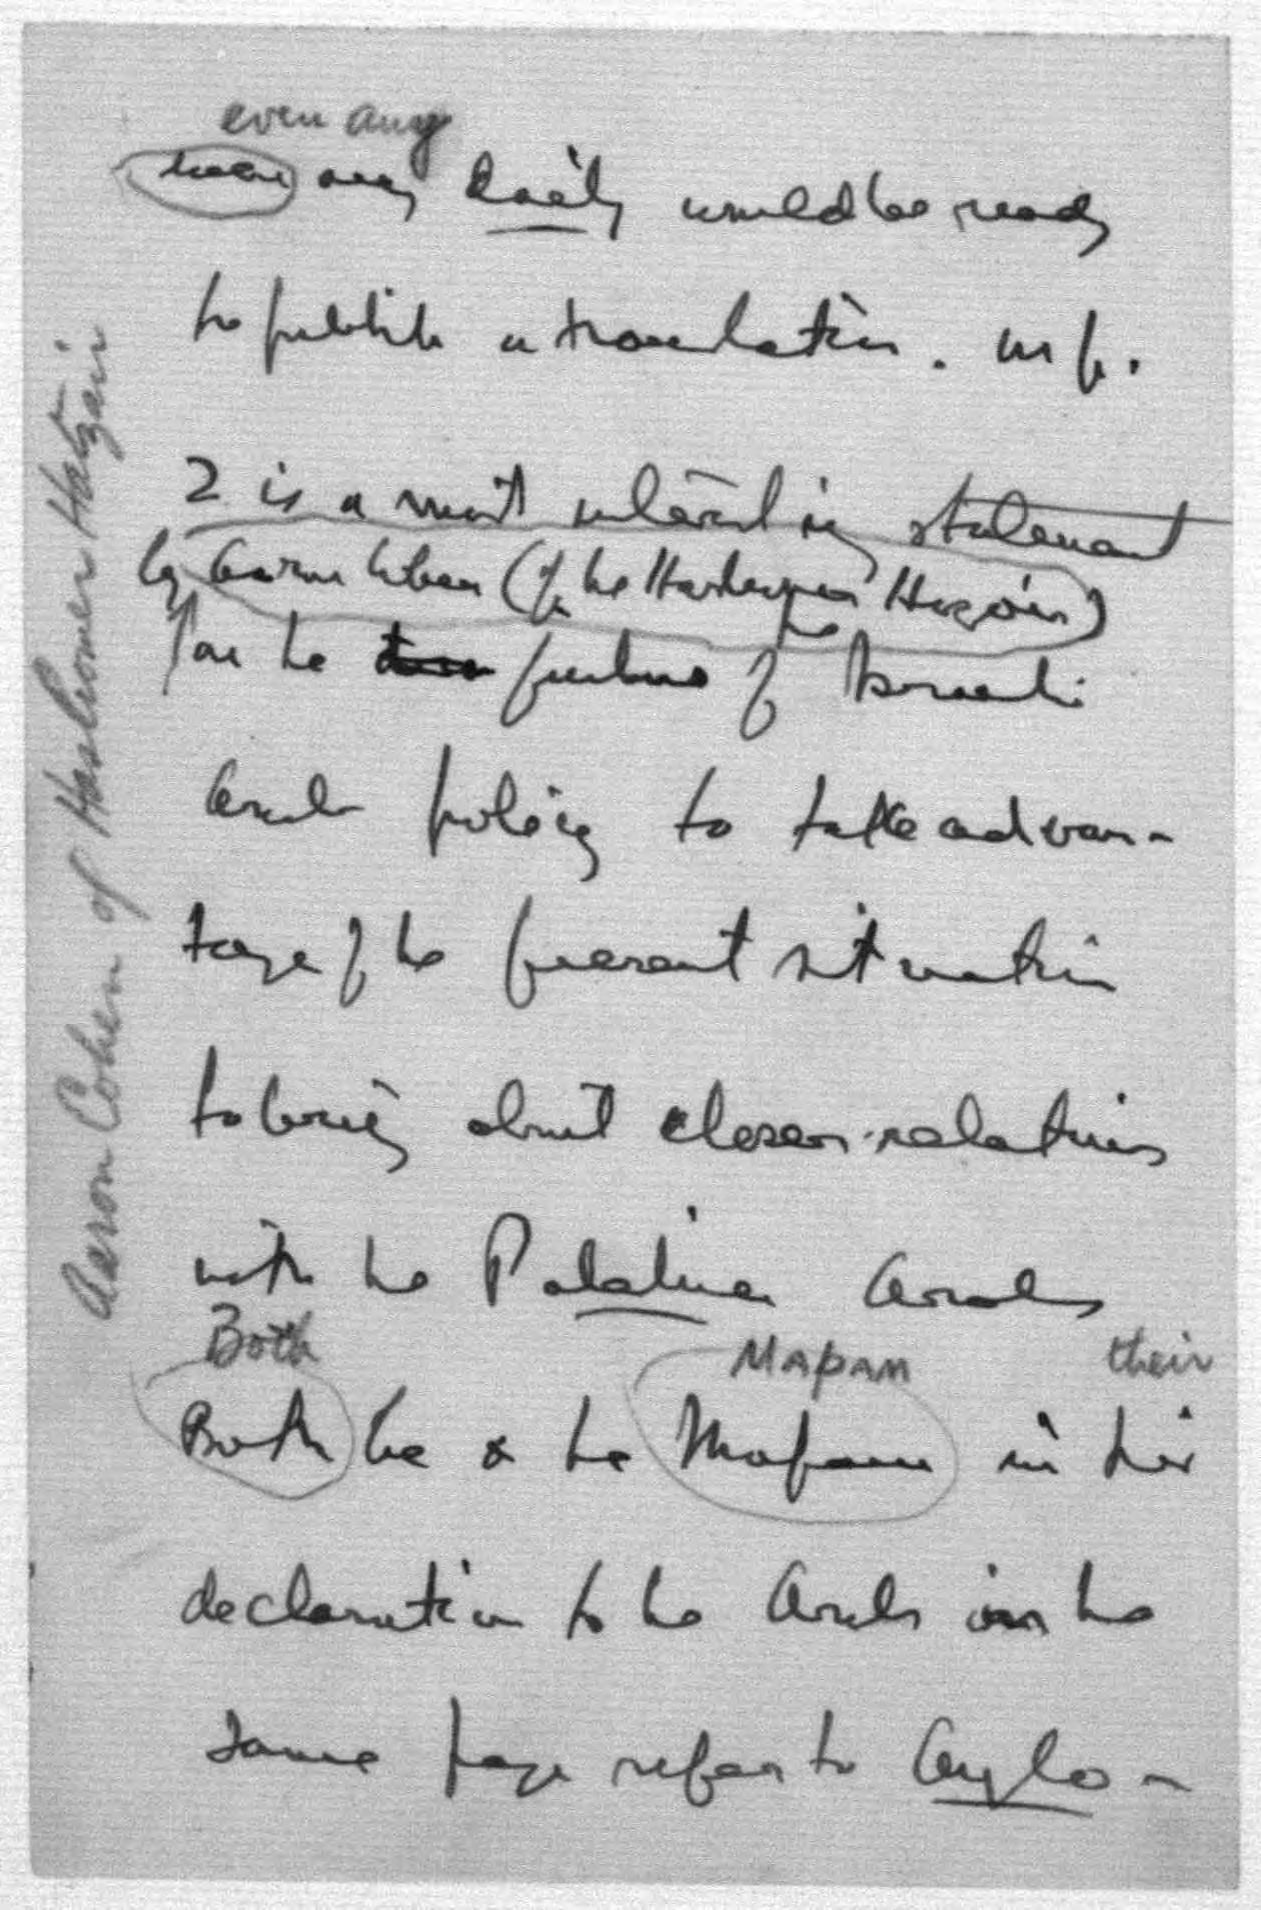 even any
even any daily would be ready
to publish a translation. On p.
2 is a most interesting statement
by Aaron Cohen (of the Hashomer Hazair)
for the future of the Israeli
Arab policy to take advan-
tage of the present situation
to bring about closer relations
with the Palestinian Arabs
Both MAPAM their
Both he & the Mapam in their
declaration to the Arabs on the
same page refer to Anglo-
Aaron Cohen of Hashomer Hatzair